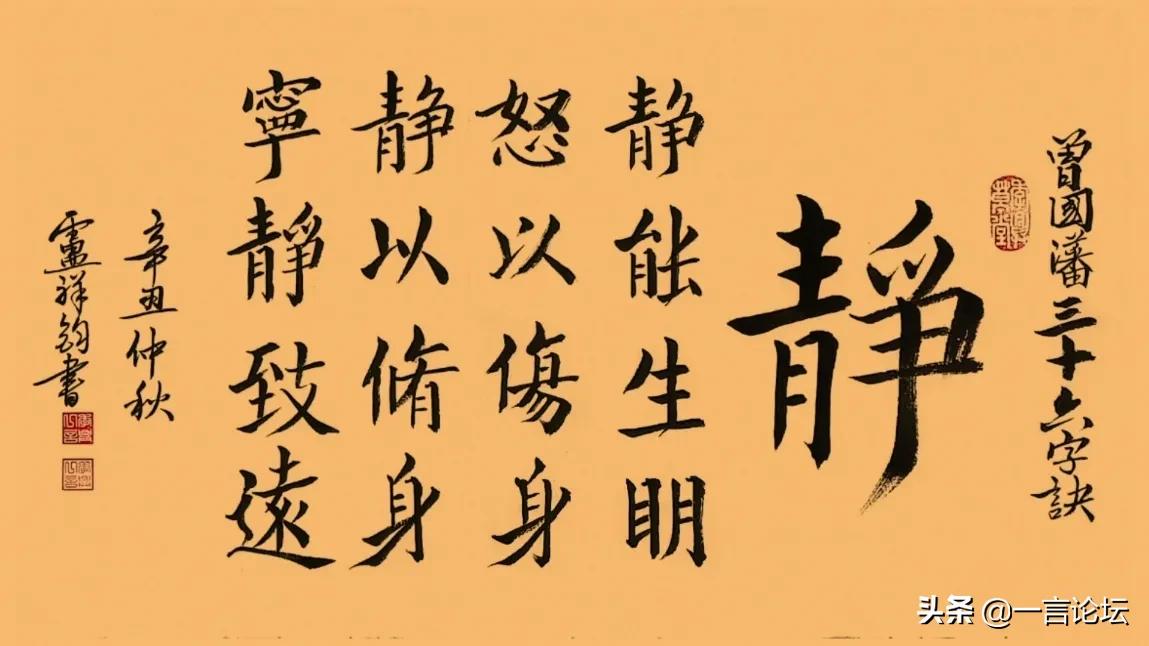 曾國藩三十六字訣
靜
静能生明
怒以傷身
静以脩身
寧靜致遠
辛丑仲秋
盧祥鈞書
头条 @一言论坛